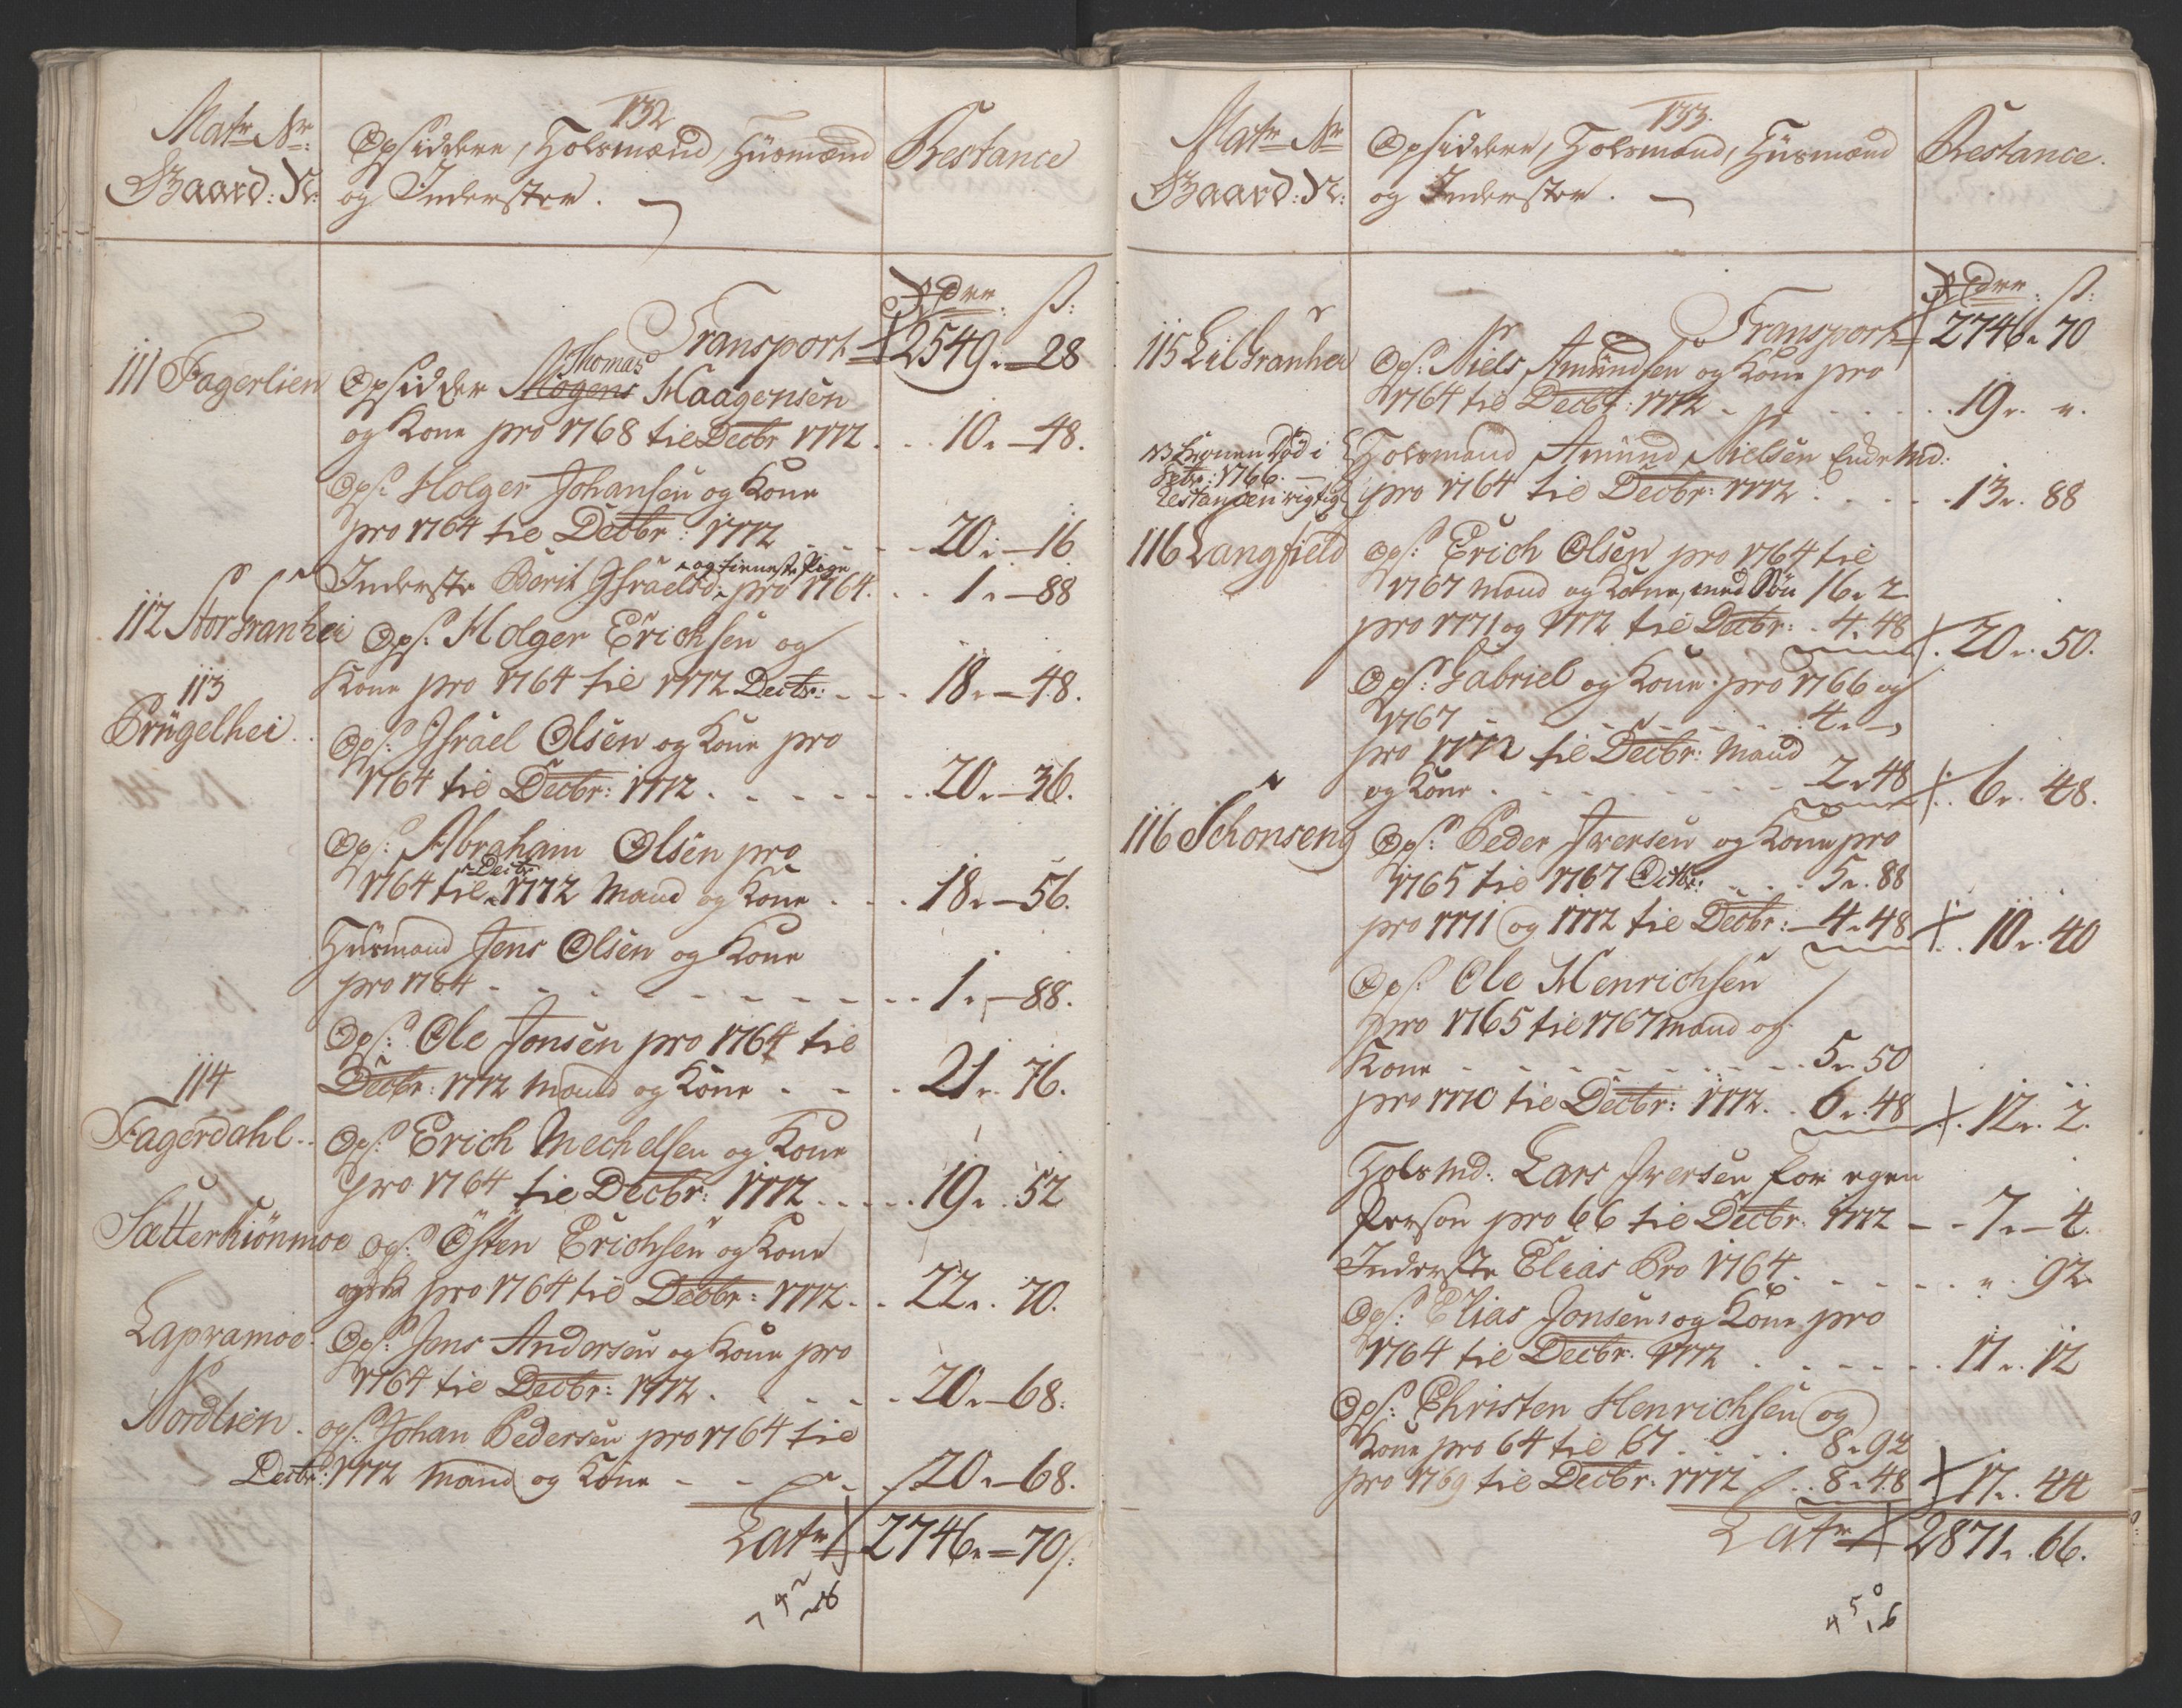 132
Matr Nr:
Gaard: N:
Opsiddere, Holsmænd, Huusmænd
og Inderster.
Restance
Rdlr. ß:
Transport 2549 „ 28
111 Fagerlien
Thomas
Opsidder Mogens Haagensen
og Kone pro 1768 til Decbr 1772 . . 10 „ 48.
Ops: Holger Johansen og Kone
pro 1764 til Decbr: 1772 - - - 20 „ 16
og tienneste Pige
Inderste Barit Israelsd: pro 1764. . . 1 „ 88
112 Storgranhei
Ops: Holger Erichsen og
Kone pro 1764 til 1772 Decbr: - - . 18 „ 48.
113
Prügelhei
Ops: Israel Olsen og Kone pro
1764 til Decbr: 1772 . - - - - . 20 „ 36.
Ops: Abraham Olsen pro
Decbr
1764 til 1772 Mand og Kone . . . 18 „ 56.
Huusmand Jens Olsen og Kone
pro 1764 - - - - - - - - - 1 „ 88.
Ops: Ole Jonsen pro 1764 til
Decbr: 1772 Mand og Kone - - . 21 „ 76.
114
Fagerdahl
Ops: Erich Mechelsen og Kone
pro 1764 til Decbr: 1772 - - - . 19 „ 52
Sætterkiönmoe
Ops: Östen Erichsen og Kone
pro 1764 til Decbr: 1772 . . 22 „ 70.
Lapramoe
Ops: Jens Andersen og Kone pro
1764 til Decbr: 1772 . - - - - . 20 „ 68.
Nordlien
Ops: Johan Pedersen pro 1764 til
Decbr: 1772 Mand og Kone - - - . 20 „ 68.
Latr 2746 „ 70 ß.
133.
Matr Nr
Gaard: N:
Opsiddere, Holsmænd, Huusmænd
og Inderster.
Restance.
Rdlr. ß:
Transport 2746 „ 70
115 Lilgranhei
Ops: Niels Amundsen og Kone pro
1764 til Decbr: 1772 - - - . . . 19 „ „.
NB Konen Død i
1766.
Restancen rigtig
Holsmand Amund Nielsen Enckemd:
pro 1764 til Decbr: 1772 . . . . 13 „ 88
116 Langfield
Ops: Erich Olsen pro 1764 til
1767 Mand og Kone, med Søn 16 „ 2
pro 1771 og 1772 til Decbr: . 4 „ 48 . 20 „ 50.
Ops: Gabriel og Kone pro 1766 og
1767 - - - - - - - - 4 „ —
pro 1772 til Decbr: Mand
og Kone . - - - - - - 2 „ 48 . 6 „ 48.
116 Schonseng
Ops: Peder Iversen og Kone pro
1765 til 1767 Octbr: . . . 5 „ 88
pro 1771 og 1772 til Decbr: 4 „ 48 . . 10 „ 40
Ops: Ole Henrichsen
pro 1765 til 1767 Mand og
Kone - - - - - - - - - 5 „ 50
pro 1770 til Decbr: 1772 . . 6 „ 48 . 12 „ 2.
Holsmd: Lars Iversen for egen
Person pro 66 til Decbr. 1772 - - 7 „ 4.
Inderste Elias Pro 1764. - - - - - . „ 92
Ops: Elias Jonsen og Kone pro
1764 til Decbr. 1772 . - - - - - . 11 „ 12
Ops: Christen Henrichsen og
Kone pro 64 til 67 . . . . 8 „ 92
pro 1769 til Decbr. 1772 . . 8 „ 48 . 17 „ 44
Latr 2871 „ 66.